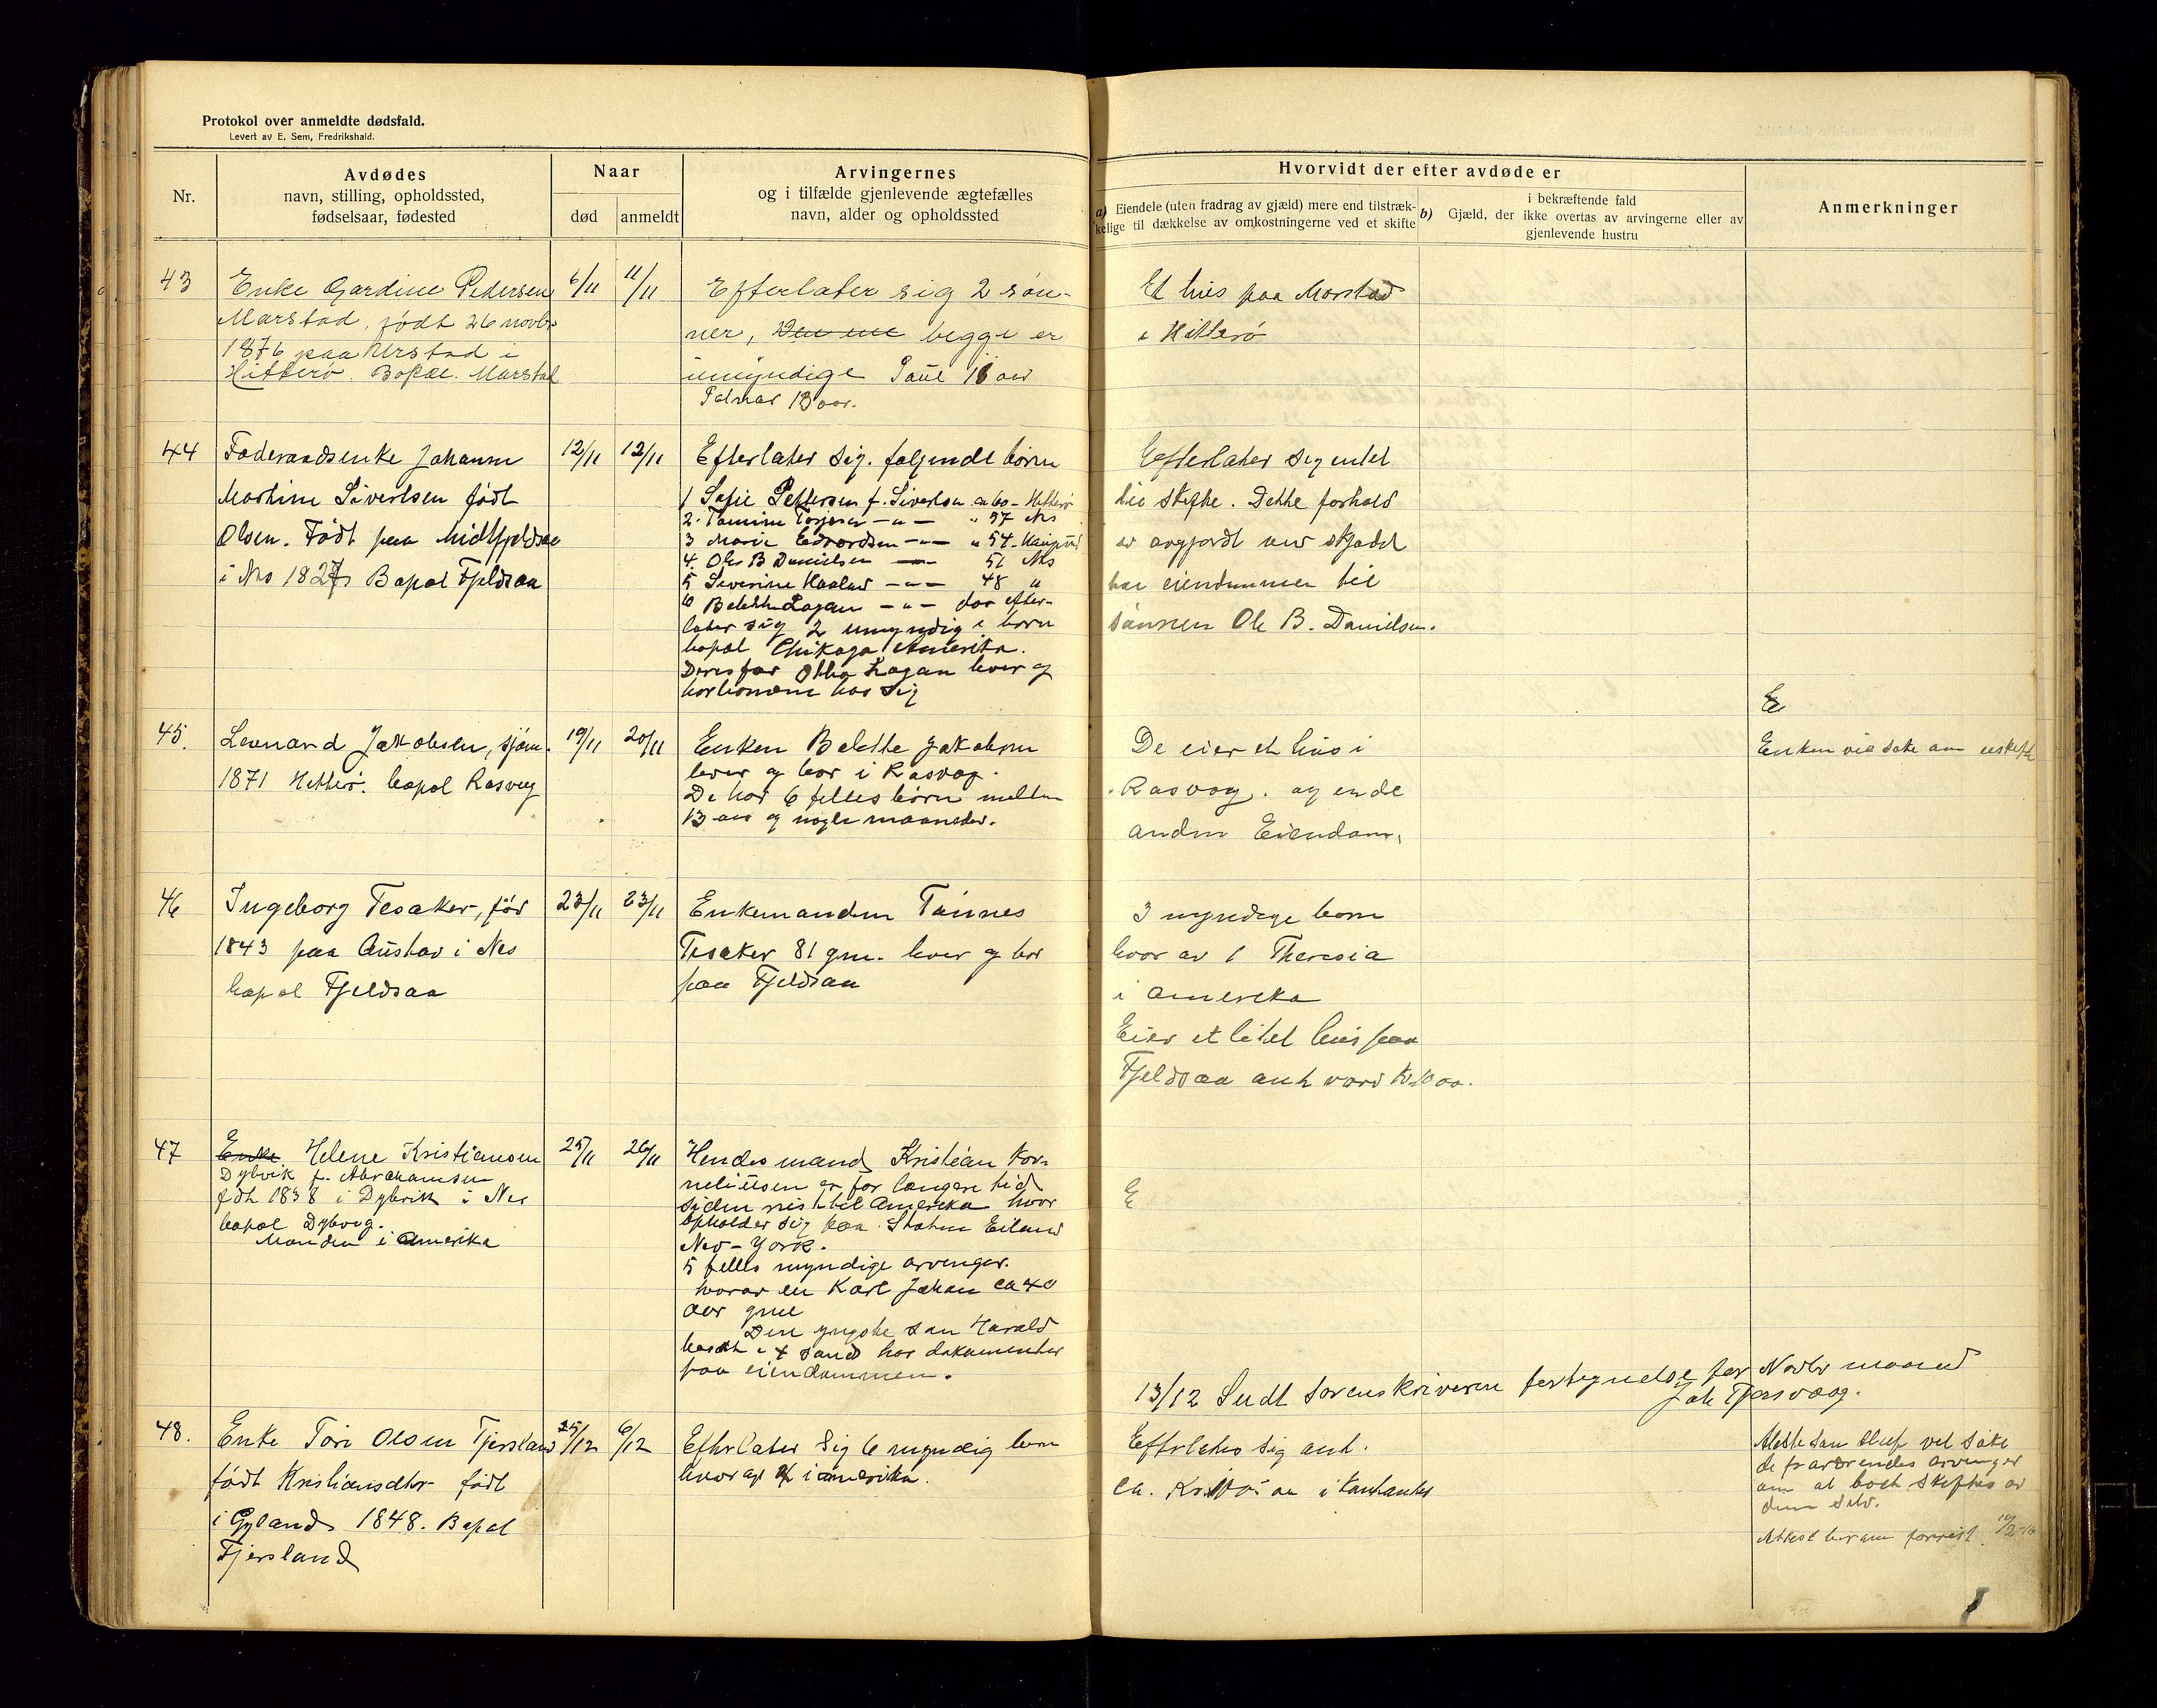 Protokol over anmeldte dødsfald.
Levert av E. Sem, Fredrikshald.
Nr.
Avdødes
navn, stilling, opholdssted,
fødselsaar, fødested
Naar
død
anmeldt
Arvingernes
og i tilfælde gjenlevende ægtefælles
navn, alder og opholdssted
Hvorvidt der efter avdøde er
a) Eiendele (uten fradrag av gjæld) mere end tilstræk-
kelige til dækkelse av omkostningerne ved et skifte
b) i bekræftende fald
Gjæld, der ikke overtas av arvingerne eller av
gjenlevende hustru
Anmerkninger
43
Enke Gardine Pedersen
Marstad, født 26 novbr
1876 paa Urstad i
Hitterø. Bopæl. Marstad
6/11
11/11
Efterlater sig 2 søn-
ner, begge er
umyndige Paul 18 aar
13 aar.
Et hus paa Marstad
i Hitterø
44
Føderaadsenke Johanne
Martine Sivertsen født
Olsen. Født paa Midtfjeldsaa
i Nes 1827 Bopæl Fjeldsaa
12/11
12/11
Efterlater sig. følgende børn
1 Sofie Pettersen f. Sivertsen ca 60 - Hitterø
2. Tomine Torjesen - " - " 57 Nes
3 Marie Edvardsen - " - " 54 -
4. Ole B Danielsen 51 Nes
5 Severine Haaland - " - 48 "
6 Logan - " - død efter-
later sig 2 umyndige børn
bopæl Chikago Amerika.
Deres far Otto Logan lever og
har børnene hos sig
Efterlater sig intet
til skifte. Dette forhold
er avgjordt ved skjødet
paa eiendommen til
sønnen Ole B. Danielsen.
45.
Leonard Jakobsen, sjøm.
1871 Hitterø. bopæl Rasvag
19/11
20/11
Enken Balette Jakobsen
lever og bor i Rasvag.
De har 6 felles børn mellem
13 aar og nogle maaneder.
De eier et hus i
Rasvog. og ende
anden Eiendom.
E
Enken vil søke om uskifte
46
Ingeborg Tesaker, før
1843 paa Austad i Nes
bopæl Fjeldsaa
23/11
23/11
Enkemanden Tønnes
Tesaker 81 gml. lever og bor
paa Fjeldsaa
3 myndige born
hvor av 1 Theresia
i Amerika
Eier et litet hus paa
Fjeldsaa ant. værd
47
Enke Helene Kristiansen
Dybvik f. Abrahamsen
født 1838 i Dybvik i Nes
bopæl Dybvig.
Manden i Amerika
25/11
26/11
Hendes mand Kristian Kor-
neliussen er for længere tid
siden reist til Amerika hvor
opholder sig paa Staten Eiland
Nev-York.
5 felles myndige arvinger.
hvorav en Karl Johan ca 40
aar gml
Den yngste søn Harald
bosat i + sand har dokumenter
paa eiendommen.
E
13/12 Sendt sorenskriveren fortegnelse for Novbr maaned
48.
Enke Tori Olsen Fjersland
født Kristiansdtr født
i Gyland 1848. Bopæl
Fjersland
5/12
6/12
Efterlater sig 6 myndig børn
hvorav i amerika.
Efterlater sig ant.
ca. Kr. i kontanter
vil søke
de fraværendes arvinger
om at boet skiftes av
dem selv.
Attest herom